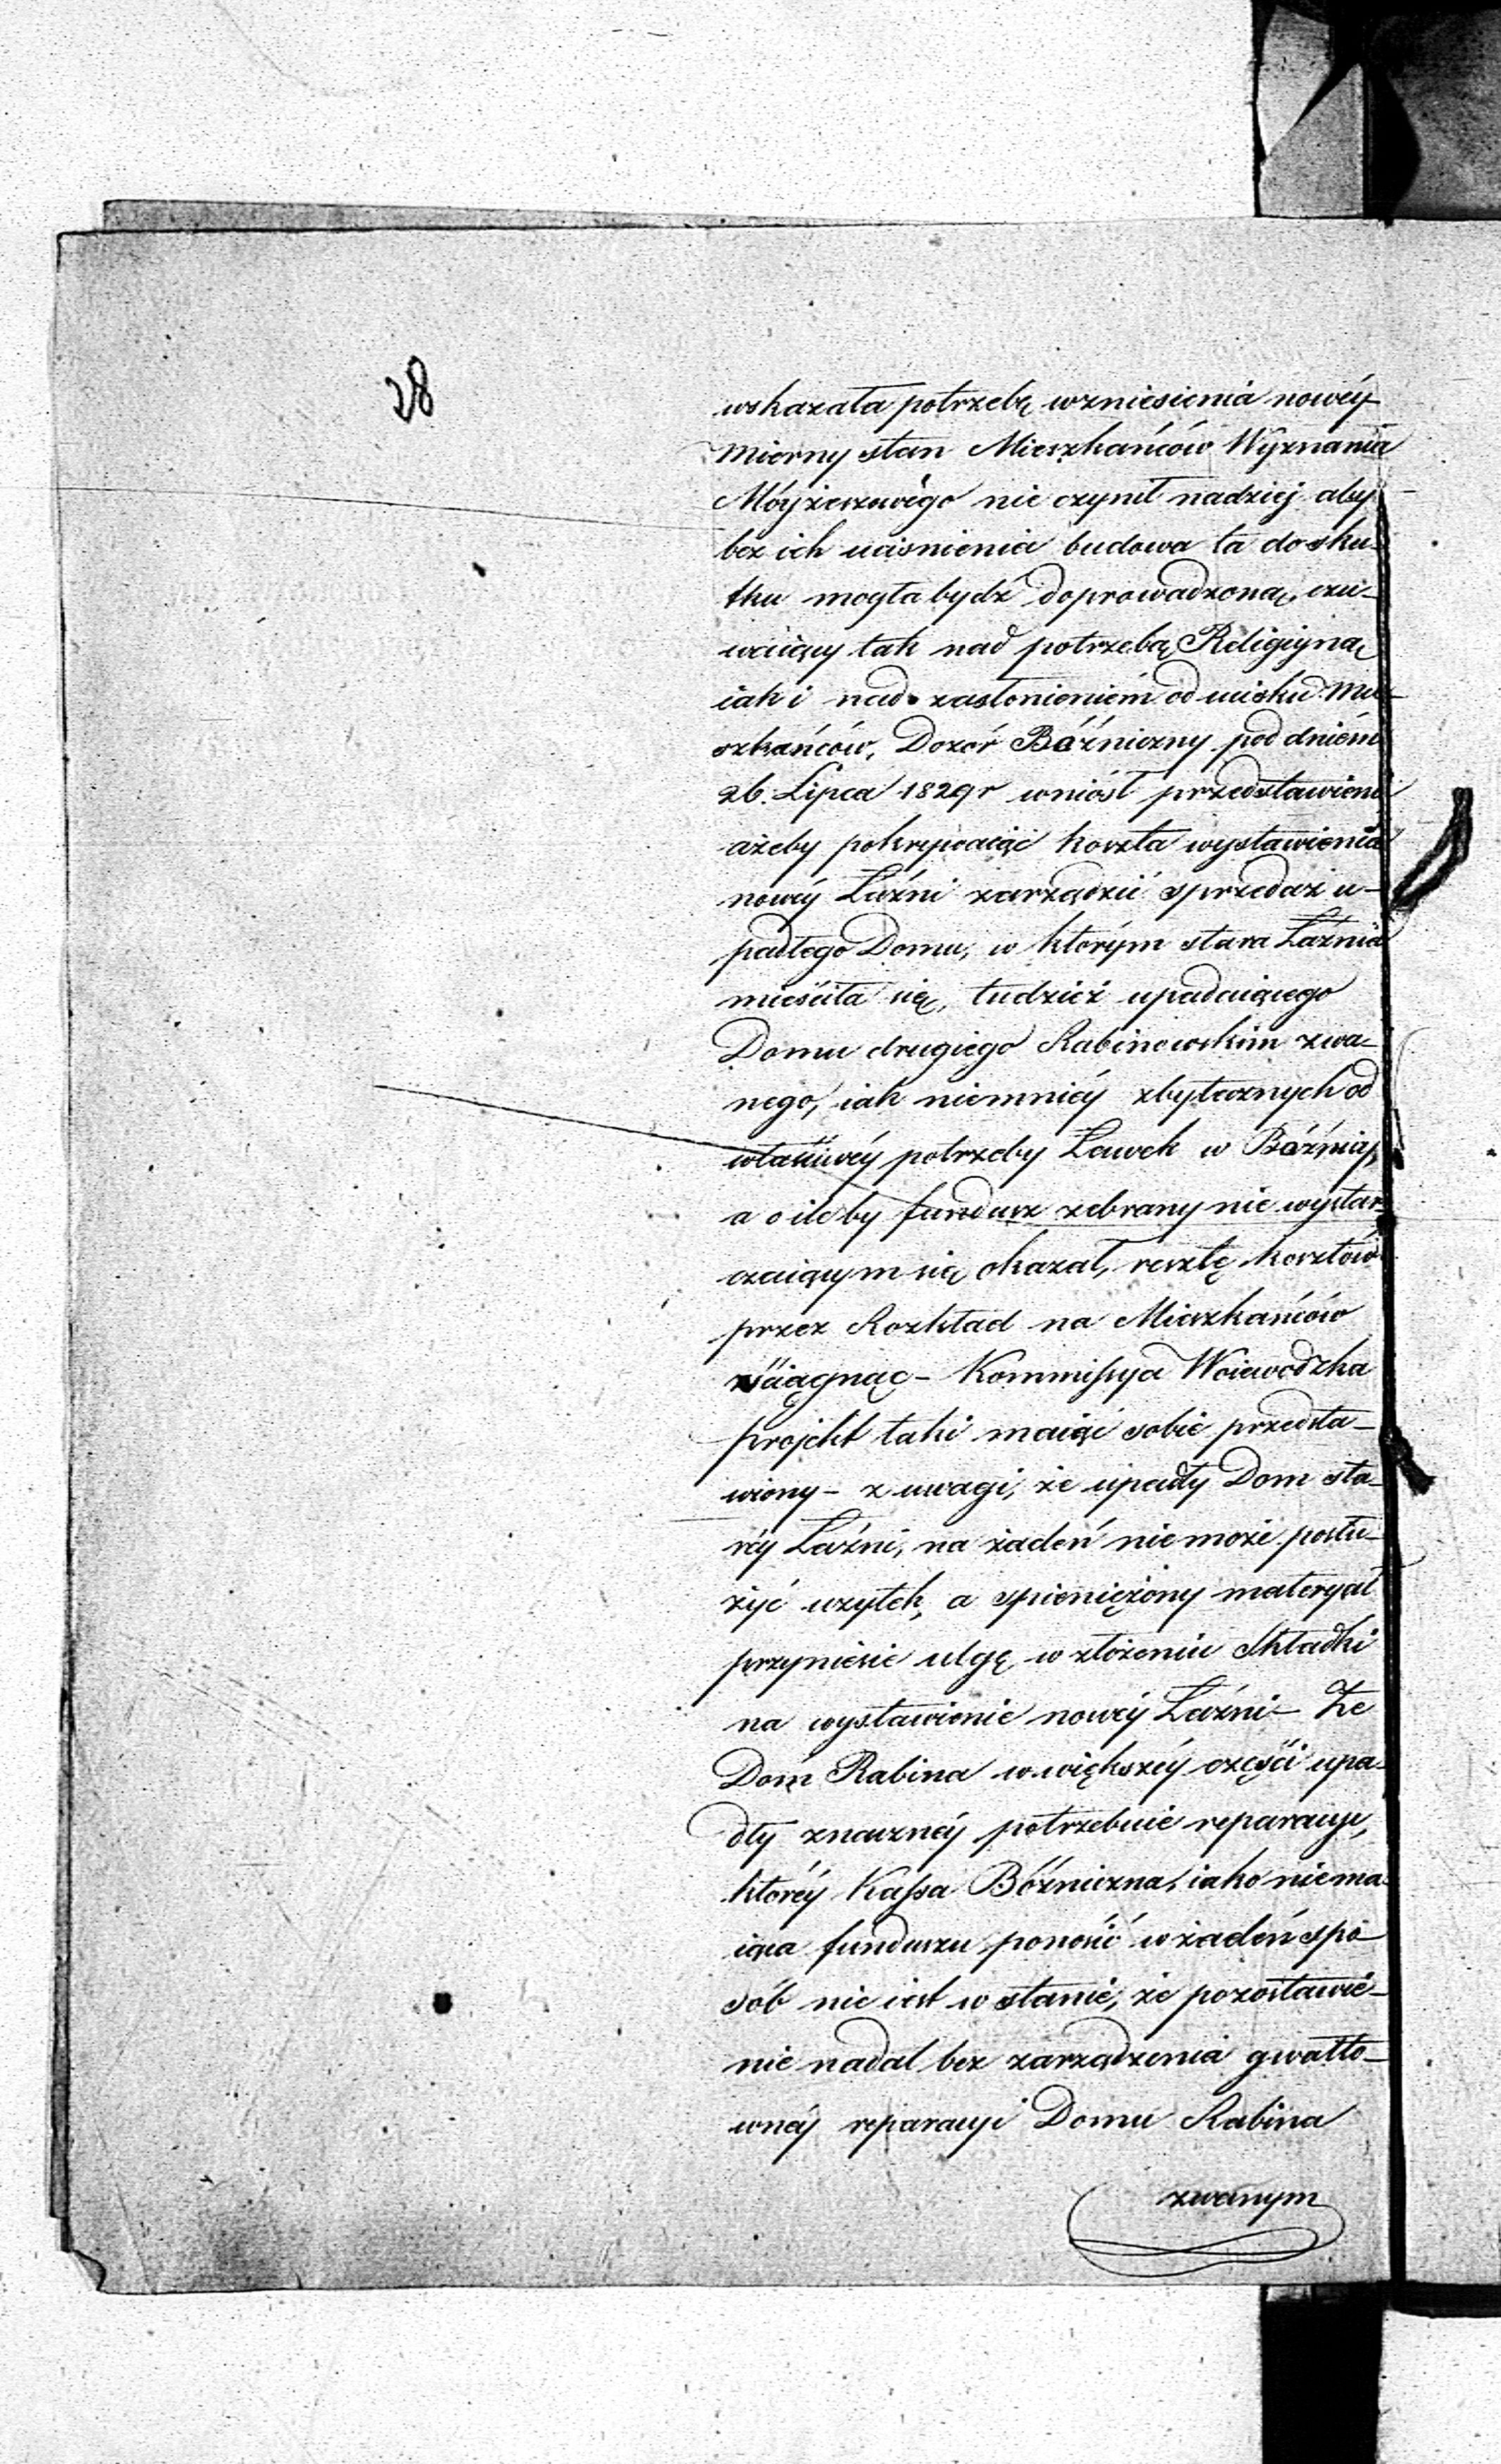 28
wskazała potrzebę wzniesienia nowéy
mierny stan Mieszkańców Wyznania
Móyżeszowego nie czynił nadziej aby
bez ich uciśnienia budowa ta do sku-
tku mogła bydź doprowadzoną, czu-
waiący tak nad potrzebą Religiyną
iak i nad zasłonieniem od ucisku Mie-
szkańców, Dozór Bóźniczny pod dniém
26. Lipca 1829r wniósł przedstawienie
ażeby pokrywaiąc koszta wystawienia
nowéy Łaźni zarządzić sprzedaż u-
padłego Domu, w którym stara Łaźnia
mieściła się, tudzież upadaiącego
Domu drugiego Rabinowskim zwa-
nego, iak niemniéy zbytecznych od
właściwéy potrzeby Ławek w Bóźnicy,
a o ile by fundusz zebrany nie wystar-
czaiącym się okazał, resztę kosztów
przez Rozkład na Mieszkańców
ściągnąć - Kommissya Woiewódzka
projekt taki maiąc sobie przedsta-
wiony - z uwagi, że upadły Dom sta-
réy Łaźni, na żaden nie może posłu-
żyć użytek, a spieniężony materyał
przyniesie ulgę w złożeniu Składki
na wystawienie nowéy Łaźni - Że
Dom Rabina w większéy części upa-
dły znacznéy potrzebuie reparacyi,
któréy Kassa Bóźniczna, iako niema-
iąca funduszu ponosić w żaden spo-
sób nie iest w stanie, że pozostawie-
nie nadal bez zarządzenia gwałto-
wnéy reparacyi Domu Rabina
zwanym